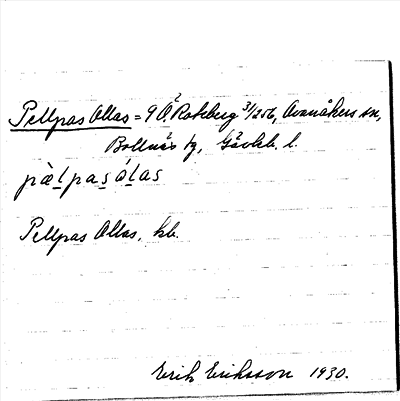 Pellpas Ollas = 9 Ö. Roteberg 3/256, Ovanåkers sn,
Bollnäs tg, Gävleb. l.
pæ̀l̠pas̠ól̠as
Pellpas Ollas, kb.
Erik Eriksson 1930.